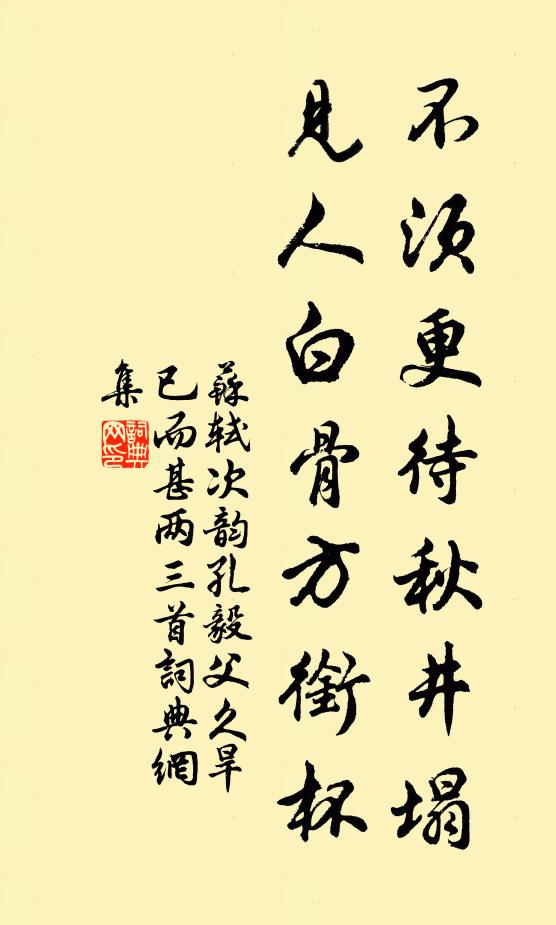 不须更待秋井塌
見人白骨方銜杯
蘇軾次韵孔毅父久旱
已而甚两三首詞典網
集
詞典網印